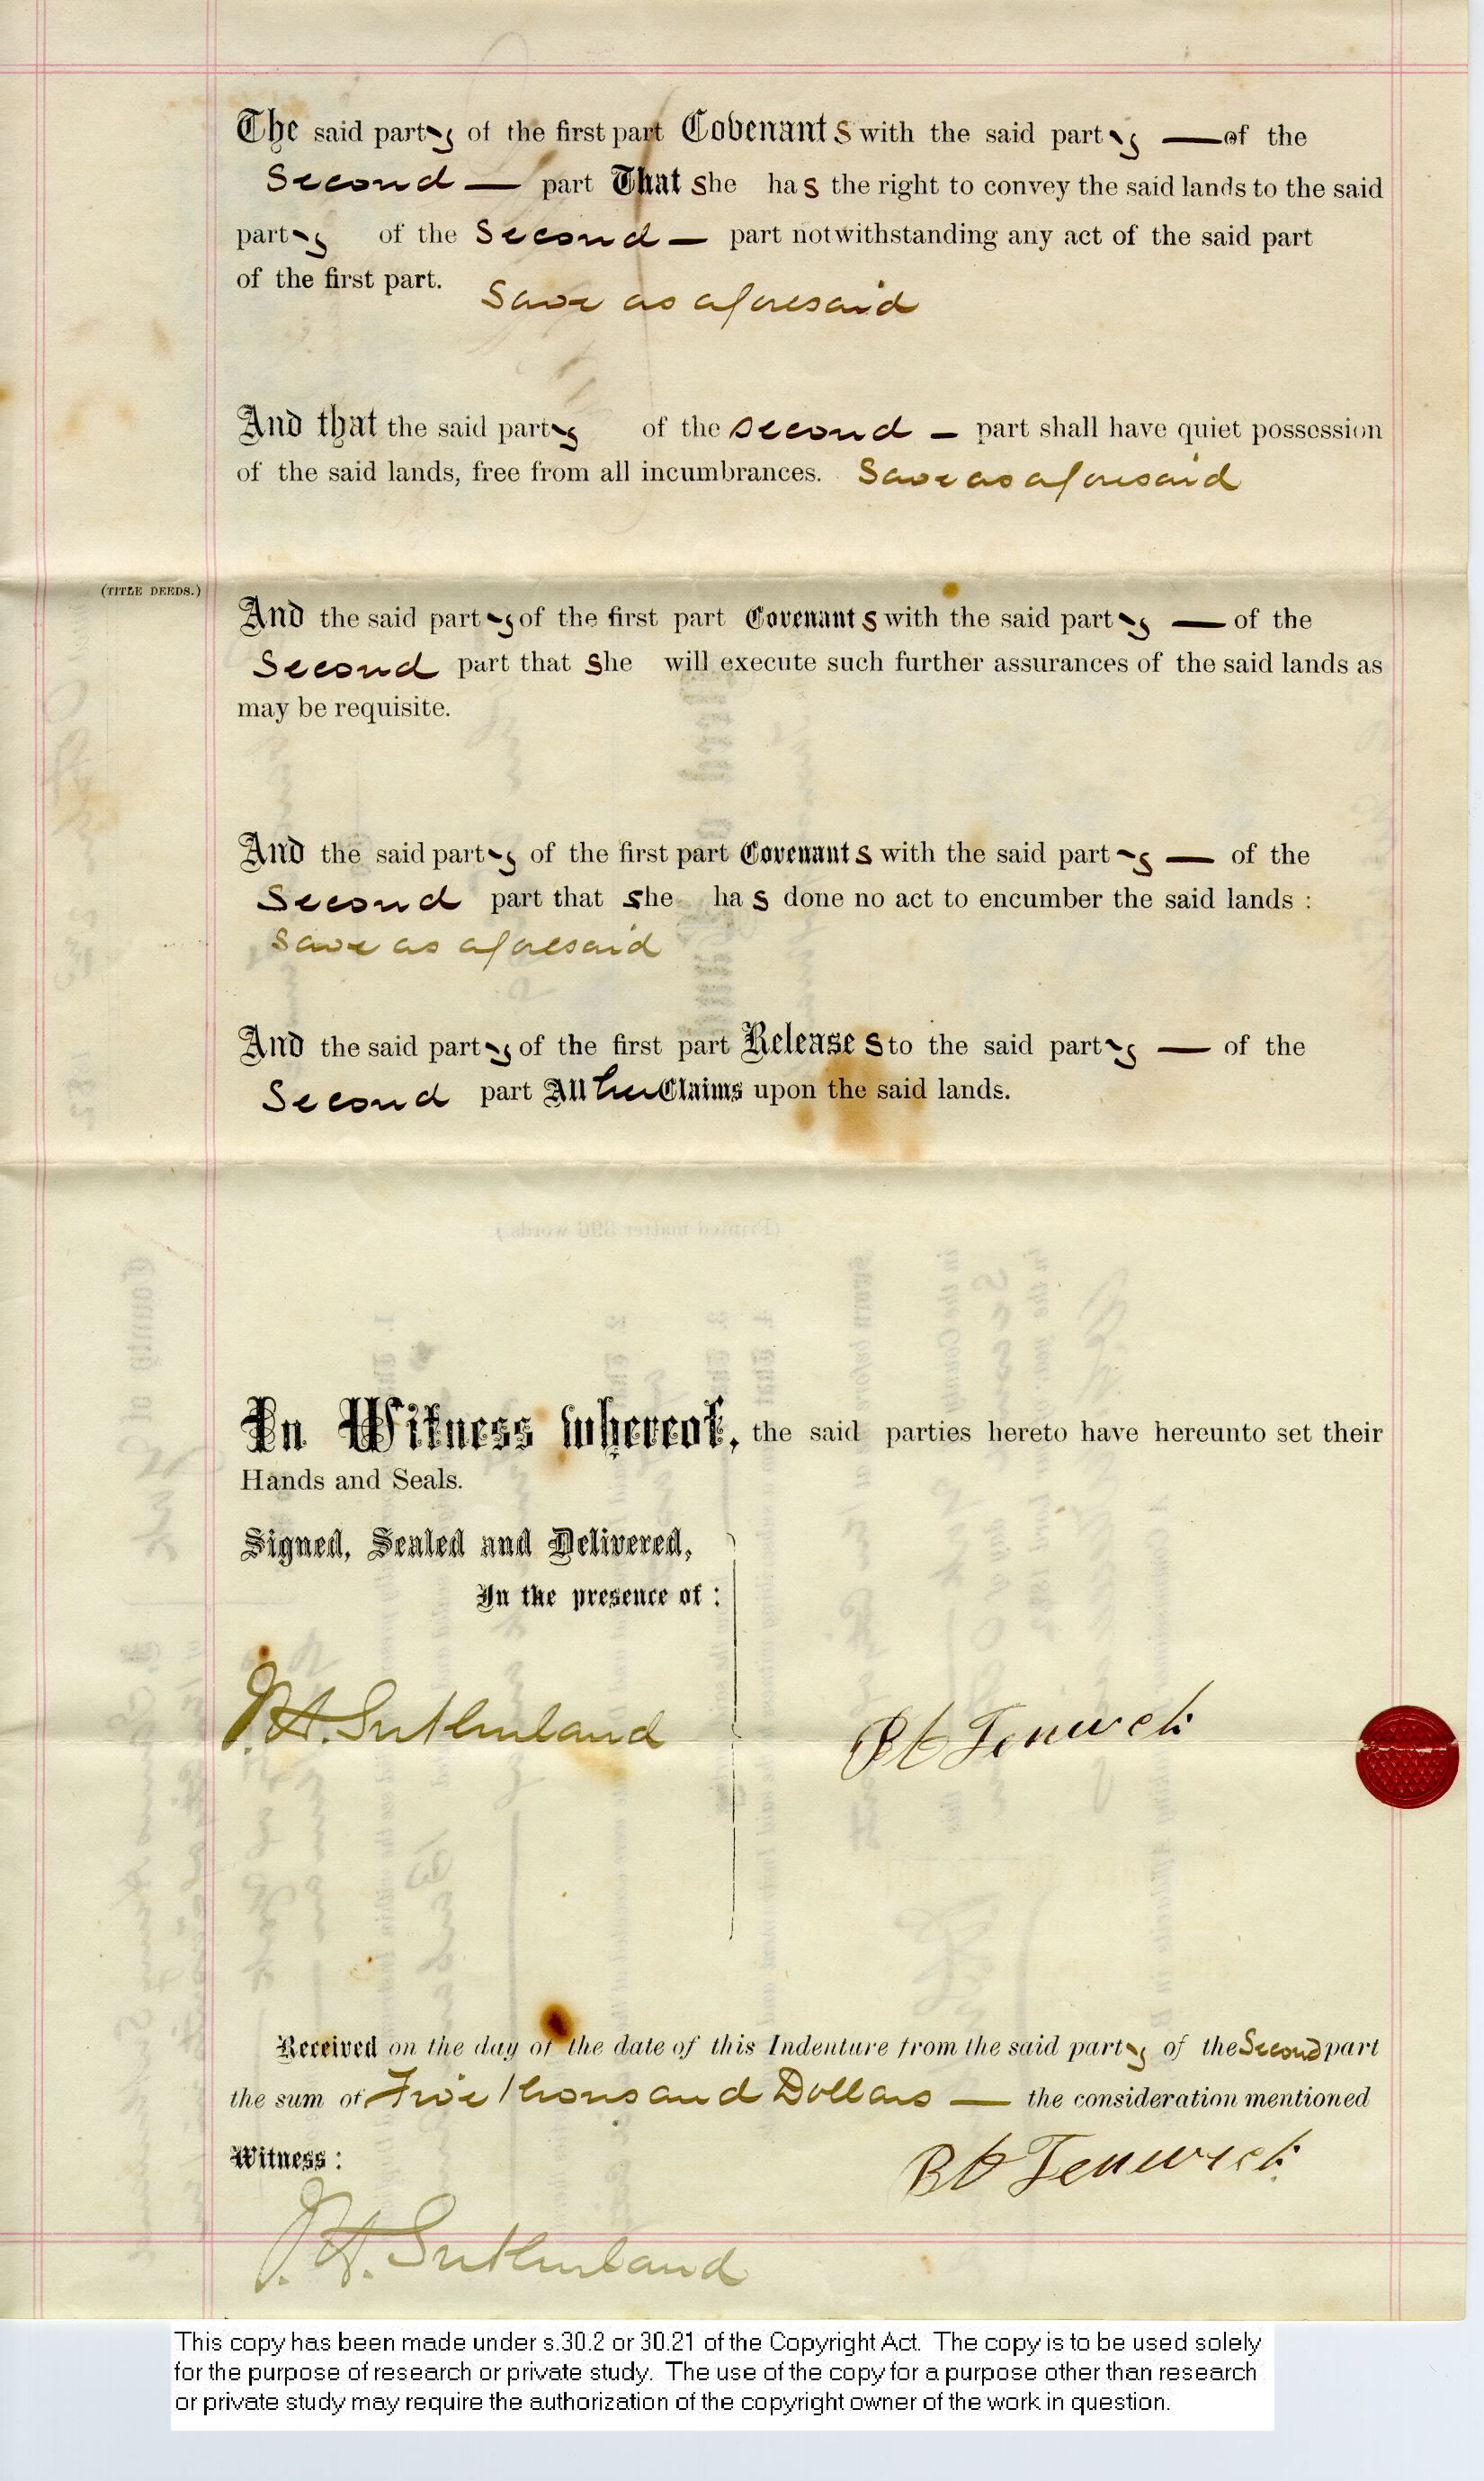 The said party of the first part Covenants with the said party — of the
Second — part That she has the right to convey the said lands to the said
party of the Second — part notwithstanding any act of the said part
of the first part. Save as aforesaid
And that the said party of the second — part shall have quiet possession
of the said lands, free from all incumbrances. Save as aforesaid
(TITLE DEEDS.)
And the said party of the first part Covenants with the said party — of the
Second part that she will execute such further assurances of the said lands as
may be requisite.
And the said party of the first part Covenants with the said party — of the
Second part that she has done no act to encumber the said lands :
Save as aforesaid
And the said party of the first part Releases to the said party — of the
Second part All her Claims upon the said lands.
In Witness whereof, the said parties hereto have hereunto set their
Hands and Seals.
Signed, Sealed and Delivered,
In the presence of :
J.A. Sutherland
Fenwick
Received on the day of the date of this Indenture from the said party of the Second part
the sum of Five Thousand Dollars — the consideration mentioned
Witness :
Fenwick
J.A. Sutherland
This copy has been made under s.30.2 or 30.21 of the Copyright Act. The copy is to be used solely
for the purpose of research or private study. The use of the copy for a purpose other than research
or private study may require the authorization of the copyright owner of the work in question.